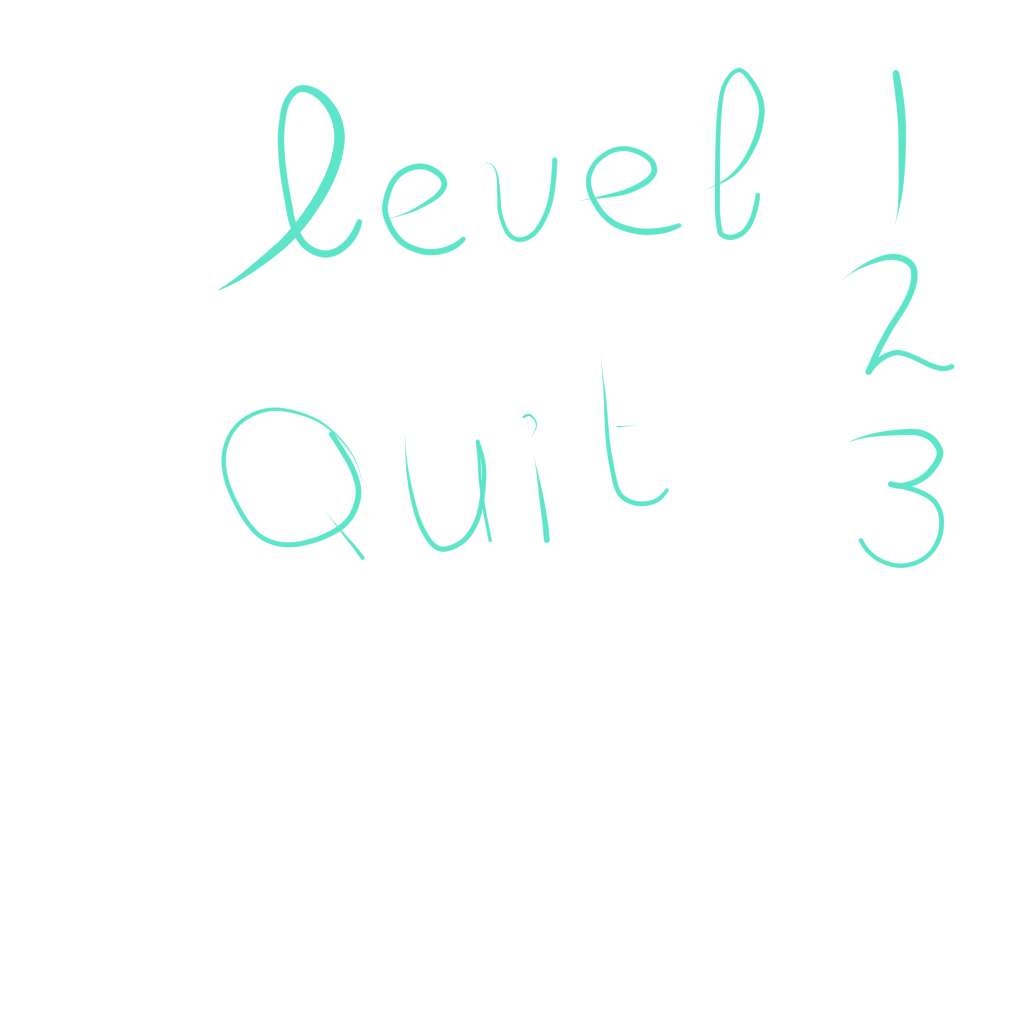 level 1
2
Quit
3